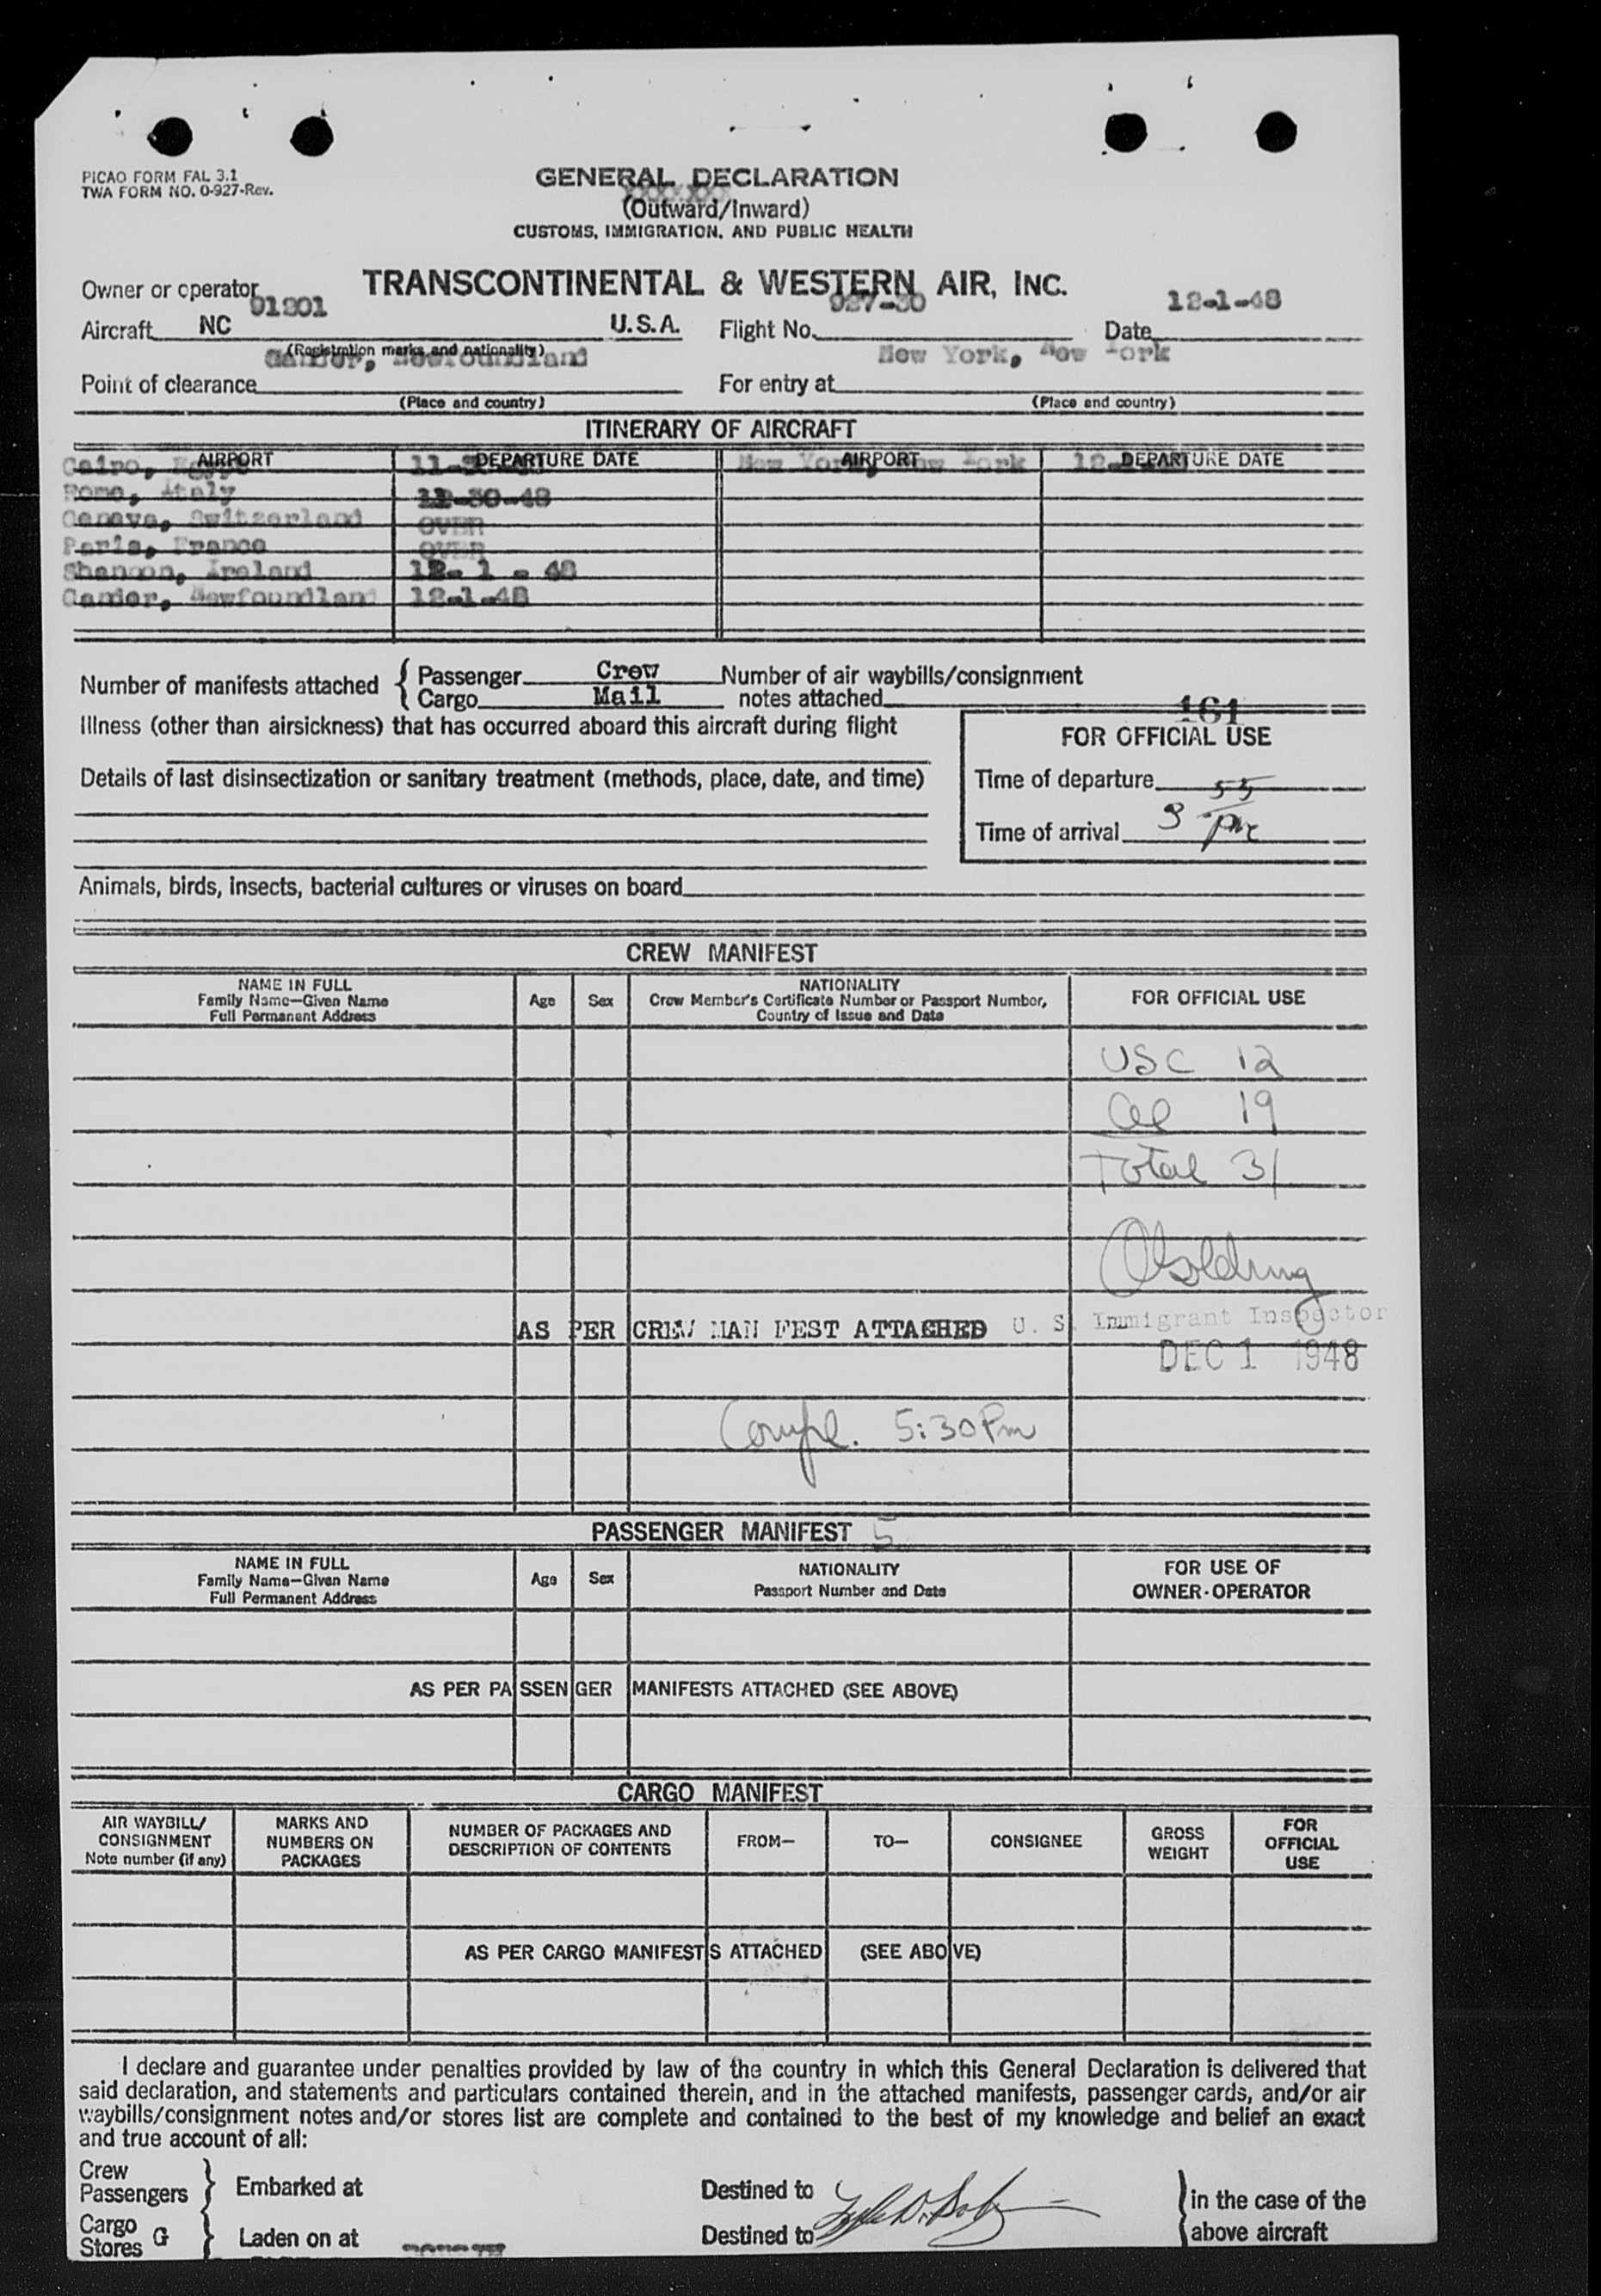 PICAO FORM FAL 3.1
TWA FORM NO. O-927-Rev.
GENERAL DECLARATION
(Outward/Inward)
CUSTOMS, IMMIGRATION, AND PUBLIC HEALTH
Owner or operator TRANSCONTINENTAL & WESTERN AIR, INC.
Aircraft NC 91201 U.S.A. Flight No. 927-30 Date 12-1-48
(Registration marks and nationality)
Point of clearance Gander, Newfoundland For entry at New York, New York
(Place and country) (Place and country)
ITINERARY OF AIRCRAFT
AIRPORT DEPARTURE DATE AIRPORT DEPARTURE DATE
Cairo, Egypt New York, New York
Rome, Italy 11-30-48
Geneva, Switzerland OVER
Paris, France OVER
Shannon, Ireland 12- 1 - 48
Gander, Newfoundland 12-1-48
Number of manifests attached { Passenger Crew Number of air waybills/consignment
Cargo Mail notes attached 161
Illness (other than airsickness) that has occurred aboard this aircraft during flight
FOR OFFICIAL USE
Details of last disinsectization or sanitary treatment (methods, place, date, and time)
Time of departure
Time of arrival 3 55 pm
Animals, birds, insects, bacterial cultures or viruses on board
CREW MANIFEST
NAME IN FULL
Family Name—Given Name
Full Permanent Address
Age Sex
NATIONALITY
Crew Member's Certificate Number or Passport Number,
Country of Issue and Date
FOR OFFICIAL USE
USC 12
al 19
Total 31
AS PER CREW MANIFEST ATTACHED U. S. Immigrant Inspector
DEC 1 1948
Compl. 5:30 Pm
PASSENGER MANIFEST 5
NAME IN FULL
Family Name—Given Name
Full Permanent Address
Age Sex
NATIONALITY
Passport Number and Date
FOR USE OF
OWNER-OPERATOR
AS PER PASSENGER MANIFESTS ATTACHED (SEE ABOVE)
CARGO MANIFEST
AIR WAYBILL/
CONSIGNMENT
Note number (if any)
MARKS AND
NUMBERS ON
PACKAGES
NUMBER OF PACKAGES AND
DESCRIPTION OF CONTENTS
FROM—
TO—
CONSIGNEE
GROSS
WEIGHT
FOR
OFFICIAL
USE
AS PER CARGO MANIFESTS ATTACHED (SEE ABOVE)
I declare and guarantee under penalties provided by law of the country in which this General Declaration is delivered that
said declaration, and statements and particulars contained therein, and in the attached manifests, passenger cards, and/or air
waybills/consignment notes and/or stores list are complete and contained to the best of my knowledge and belief an exact
and true account of all:
Crew
Passengers } Embarked at Destined to } in the case of the
Cargo
Stores G } Laden on at Destined to above aircraft